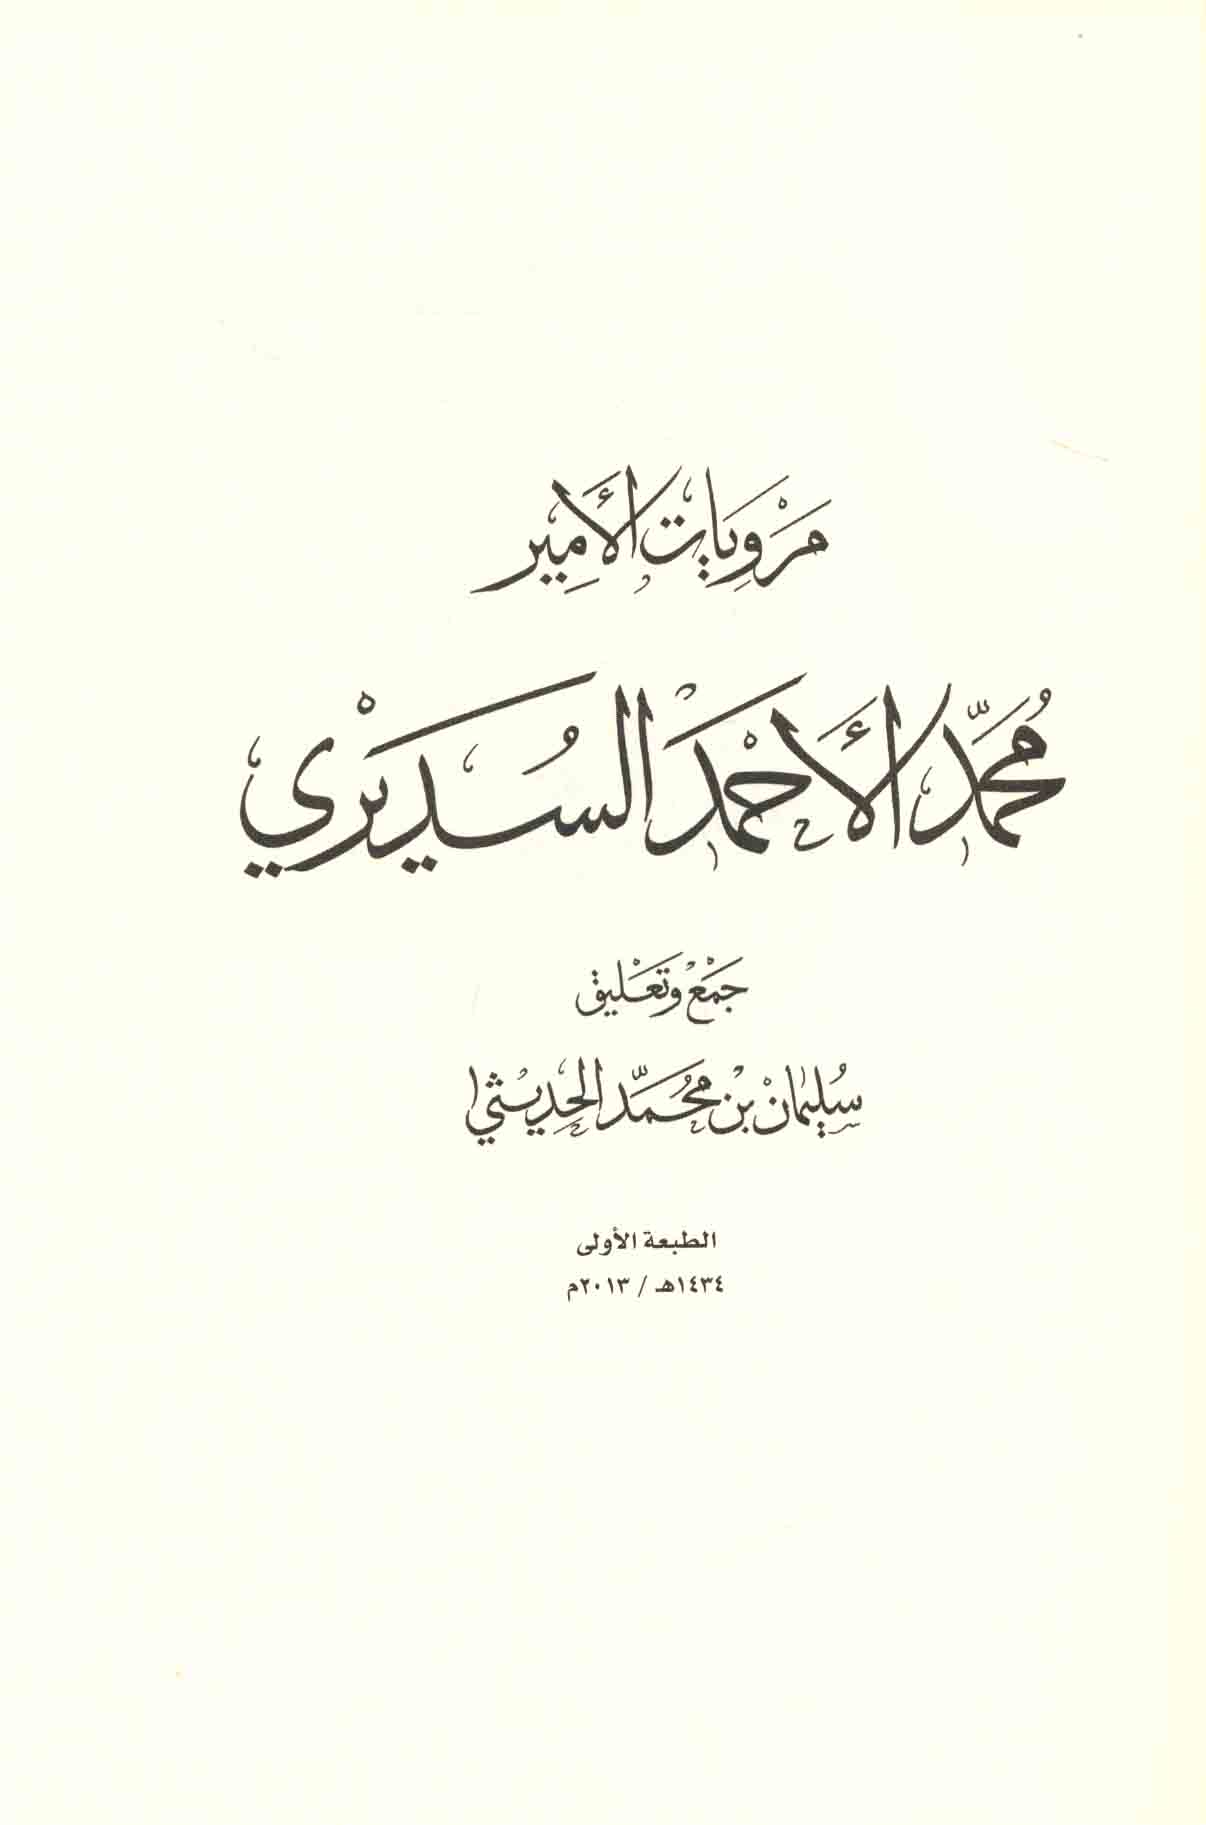 مَرْوِيَات الأَمِير
مُحَمَّد الأَحْمَد السُدَيْرِي
جَمْعُ وَتَعْلِيق
سُلَيْمَان بْن مُحَمَّد الحَدِيثِي
الطبعة الأولى
١٤٣٤هـ / ٢٠١٣م